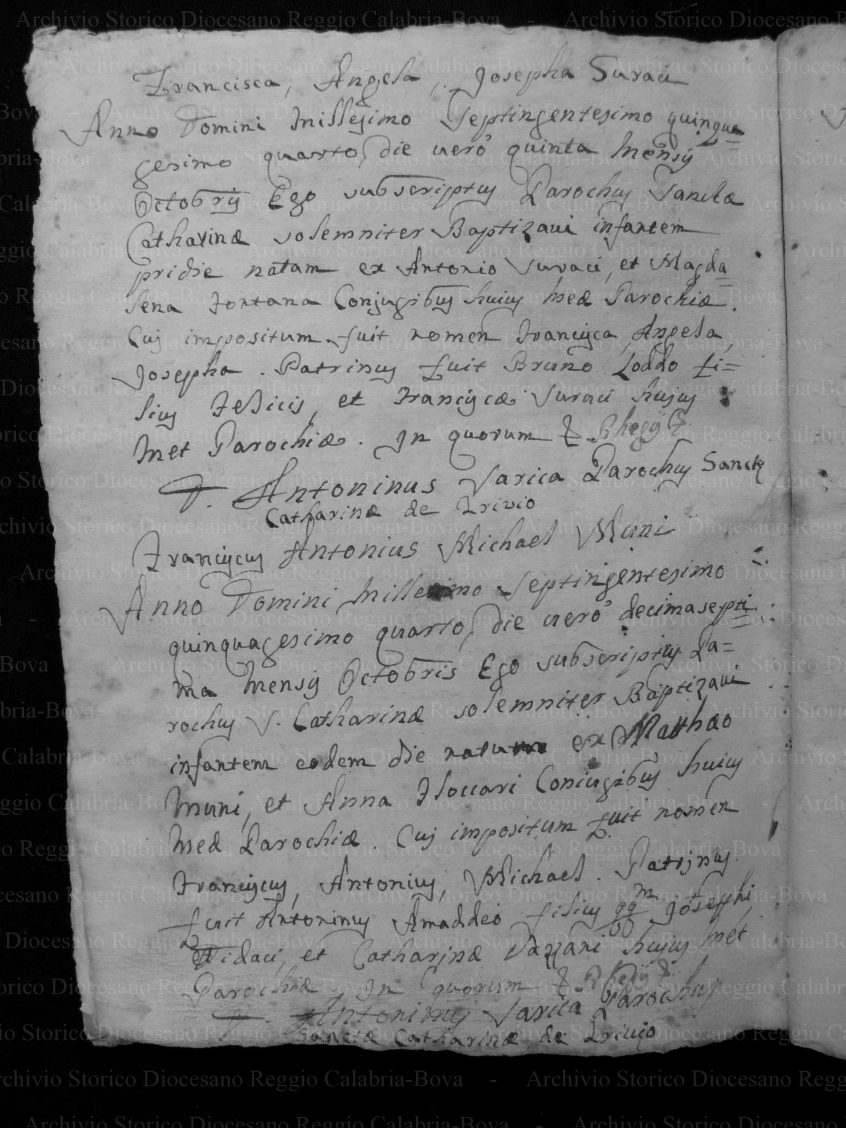 Francisca, Angela, Josepha Suraci
Anno Domini Millesimo Septingentesimo quinqua=
gesimo quarto, die vero quinta Mensij
Octobrij Ego subscriptus Parochus Sanctæ
Catharinæ solemniter Baptizavi infantem
pridie natam ex Antonio Suraci, et Magda=
lena Fontana Conjugibus huius meæ Parochiæ.
Cuj impositum fuit nomen Francisca, Angela,
Josepha. Patrinus fuit Bruno Loddo fi=
lius Felicis, et Franciscæ Suraci hujus
met Parochiæ. In quorum
D. Antoninus Sarica Parochus Sanctæ
Catharinæ de Trivio
Franciscus Antonius Michael Muni
Anno Domini Millesimo Septingentesimo
quinquagesimo quarto, die vero decimasepti=
ma Mensij Octobris Ego subscriptus Pa=
rochus S. Catharinæ solemniter Baptizavi
infantem eodem die natum ex Matthæo
Muni, et Anna Floccari Coniugibus huius
meæ Parochiæ. Cuj impositum fuit nomen
Franciscus, Antonius, Michael. Patrinus
fuit Antoninus Amaddeo filius qqm Josephi
et Catharinæ hujus met
Parochiæ. In quorum
D. Antoninus Sarica Parochus
Sanctæ Catharinæ de Trivio
Archivio Storico Diocesano Reggio Calabria-Bova